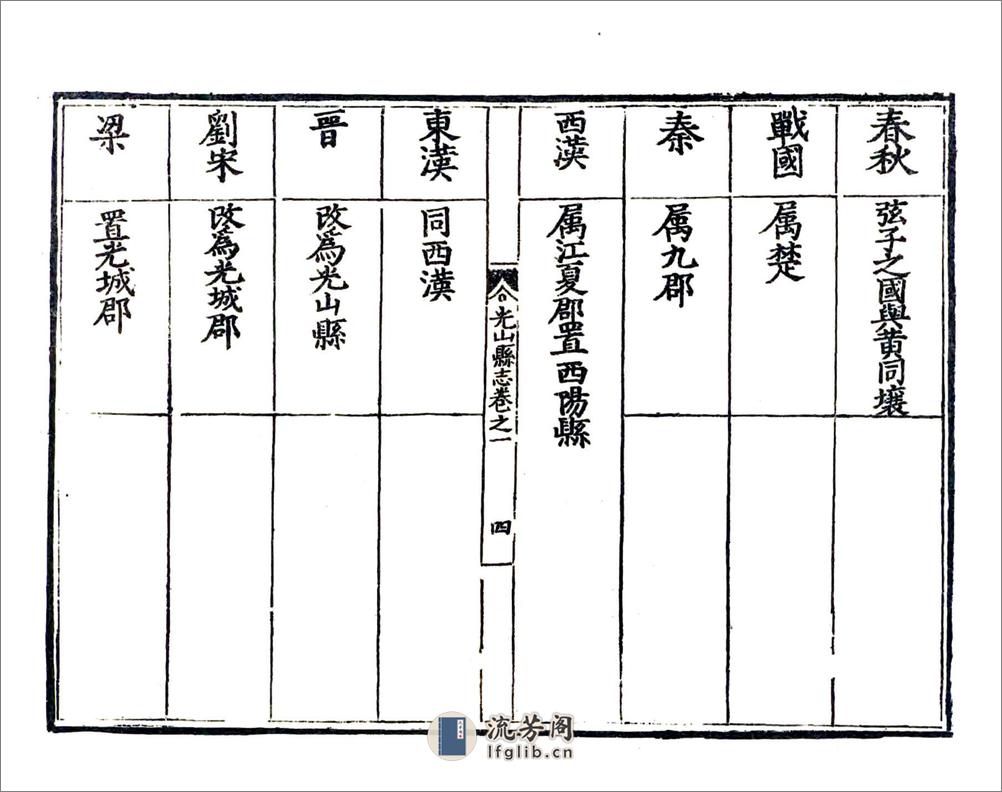 春秋
弦子之國與黄同壤
戰國
属楚
秦
属九郡
西漢
属江夏郡置西陽縣
光山縣志卷之一
四
東漢
同西漢
晉
改爲光山縣
劉宋
改爲光城郡
梁
置光城郡
流芳阁
lfglib.cn